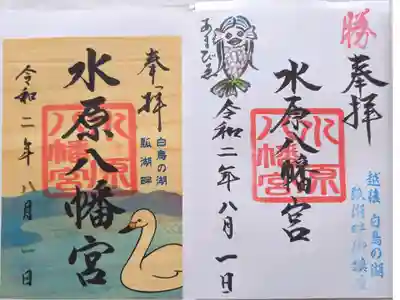 奉拝
水原八幡宮
水原八幡宮
白鳥の湖
瓢湖畔
令和二年八月一日
勝
奉拝
水原八幡宮
水原八幡宮
あまびゑ
令和二年八月一日
越後 白鳥の湖
瓢湖畔御鎮座